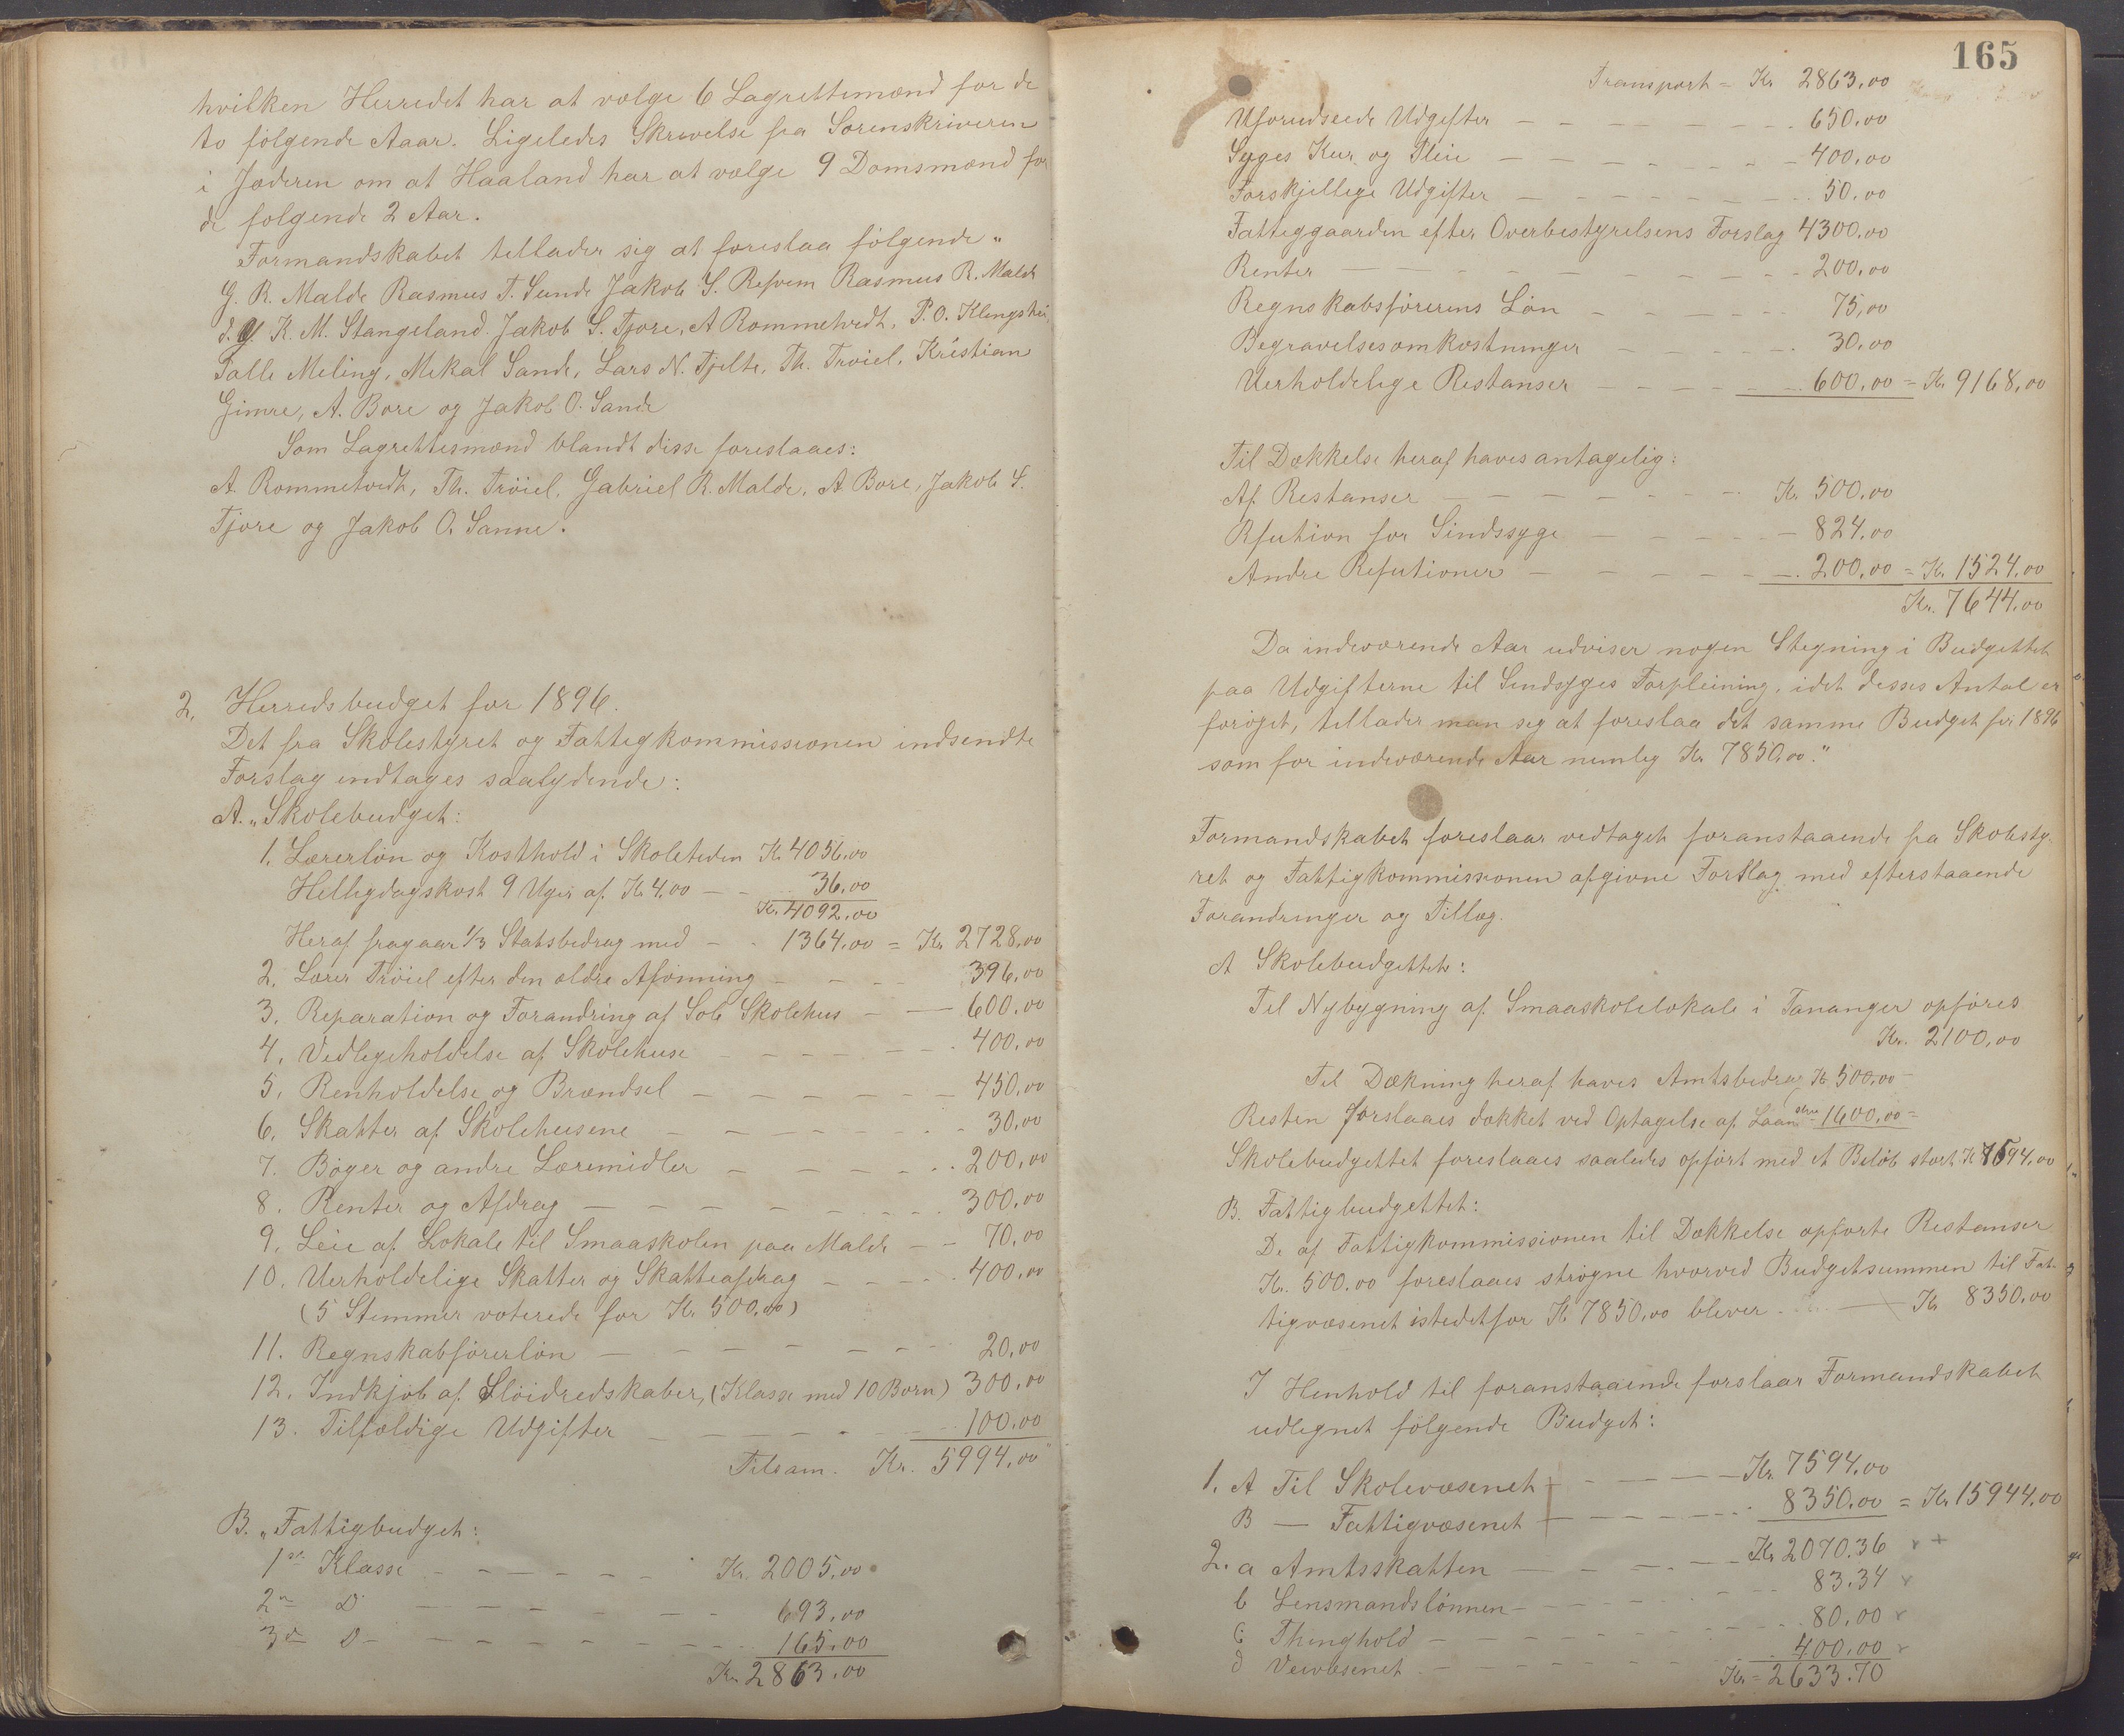 hvilken Herredet har at vælge 6 Lagrettemænd for de
to følgende Aaar. Ligeledes Skrivelse fra Sorenskriveren
i Jæderen om at Haaland har at vælge 9 Domsmænd for
de følgende 2 Aar.
Formandskabet tillader sig at foreslaa følgende „
G. R. Malde Rasmus T. Sunde Jakob S. Refsem Rasmus R. Malde
K. M. Stangeland. Jakob S. Tjore, A Rommetvedt, P. O. Klingshei,
Salle Meling, Mekal Sande, Lars N. Tjelte, Th. Trøiel, Kristian
Gimre, A. Bore og Jakob O. Sande
Som Lagrettesmænd blandt disse foreslaaes:
A. Rommetvedt, Th. Trøiel, Gabriel R. Malde, A Bore, Jakob S.
Tjore og Jakob O. Sanne.
2. Herredsbudget for 1896.
Det fra Skolestyret og Fattigkommissionen indsendte
Forslag indtages saalydende:
A. „Skolebudget:
1. Lærerløn og Kosthold i Skoletiden Kr. 4056.00
Helligdagskost 9 Uger af Kr 4.00 — - 36.00
Kr. 4092.00
Heraf fragaar 1/3 Statsbidrag med — - 1364.00 = Kr 2728.00
2. Lærer Trøiel efter den ældre Aflønning - — - - 396.00
3. Reparation og Forandring af Sole Skolehus — — 600.00
4. Vedligeholdelse af Skolehuse - - - - - - 400.00
5. Renholdelse og Brændsel - - - - - - 450.00
6. Skatter af Skolehusene - - - - - - 30.00
7. Bøger og andre Læremidler - - - - - 200.00
8. Renter og Afdrag - - - - - - 300.00
9. Leie af Lokale til Smaaskolen paa Malde - - 70.00
10. Uerholdelige Skatter og Skatteafdrag - - - - 400.00
(5 Stemmer voterede for Kr. 500.00)
11. Regnskabførerløn - - - - - - 20.00
12. Indkjøb af Sløidredskaber, (Klasse med 10 Børn) 300.00
13. Tilfældige Udgifter - - - - - 100.00
Tilsam. Kr. 5994.00"
B. „Fattigbudget:
1ste Klasse - - - - - - Kr. 2005.00
2n D - - - - - - 693.00
3d D - - - - - - 165.00
Kr. 2863.00
165
Transport = Kr 2863.00
Uforudseede Udgifter - - - - - - 650.00
Syges Kur og Pleie - - - - - - 400.00
Forskjellige Udgifter - - - - - - 50.00
Fattiggaarden efter Overbestyrelsens Forslag 4300.00
Renter - - - - - - - 200.00
Regnskabsførerens Løn - - - - - 75,00
Begravelsesomkostninger - - - - 30.00
Uerholdelige Restanser - - - - 600.00 = Kr 9168,00
Til Dækkelse heraf haves antagelig:
Af Restanser - - - - - - Kr. 500.00
Rfution for Sindssyge - - - - - 824.00
Andre Refutioner - - - - - 200.00 = Kr. 1524.00
Kr. 7644.00
Da indeværende Aar udviser nogen Stigning i Budgettet
paa Udgifterne til Sindsyges Forpleining, idet disses Antal er
forøget, tillader man sig at foreslaa det samme Budget for 1896
som for indeværende Aar nemlig Kr 7850.00."
Formandskabet foreslaar vedtaget foranstaaende fra Skolesty-
ret og Fattigkommissionen afgivne Forslag med efterstaaende
Forandringer og Tillæg.
A Skolebudgettet:
Til Nybygning af Smaaskolelokale i Tananger opføres
Kr. 2100,00
Til Dækning heraf haves Amtsbidrag Kr 500,00
Resten forslaaes dækket ved Optagelse af Laan 1600,00
Skolebudgettet foreslaaes saaledes opført med et Beløb stort Kr 7594,00
B. Fattigbudgettet:
De af Fattigkommissionen til Dækkelse opførte Restanser
Kr. 500.00 foreslaaes strøgne hvorved Budgetsummen til Fat-
tigvæsenet istedetfor Kr 7850,00 bliver — Kr 8350.00
I Henhold til foranstaaende forslaar Formandskabet
udlignet følgende Budget:
1. A Til Skolevæsenet - - - - Kr 7594,00
B — Fattigvæsenet - - - - 8350.00 = Kr. 15944.00
2. a Amtsskatten - - - - Kr 2070.36
b Lensmandslønnen - - - - 83.34
c Thinghold - - - - - 80.00
d Veivæsenet - - - - - 400.00
Kr = 2633.70